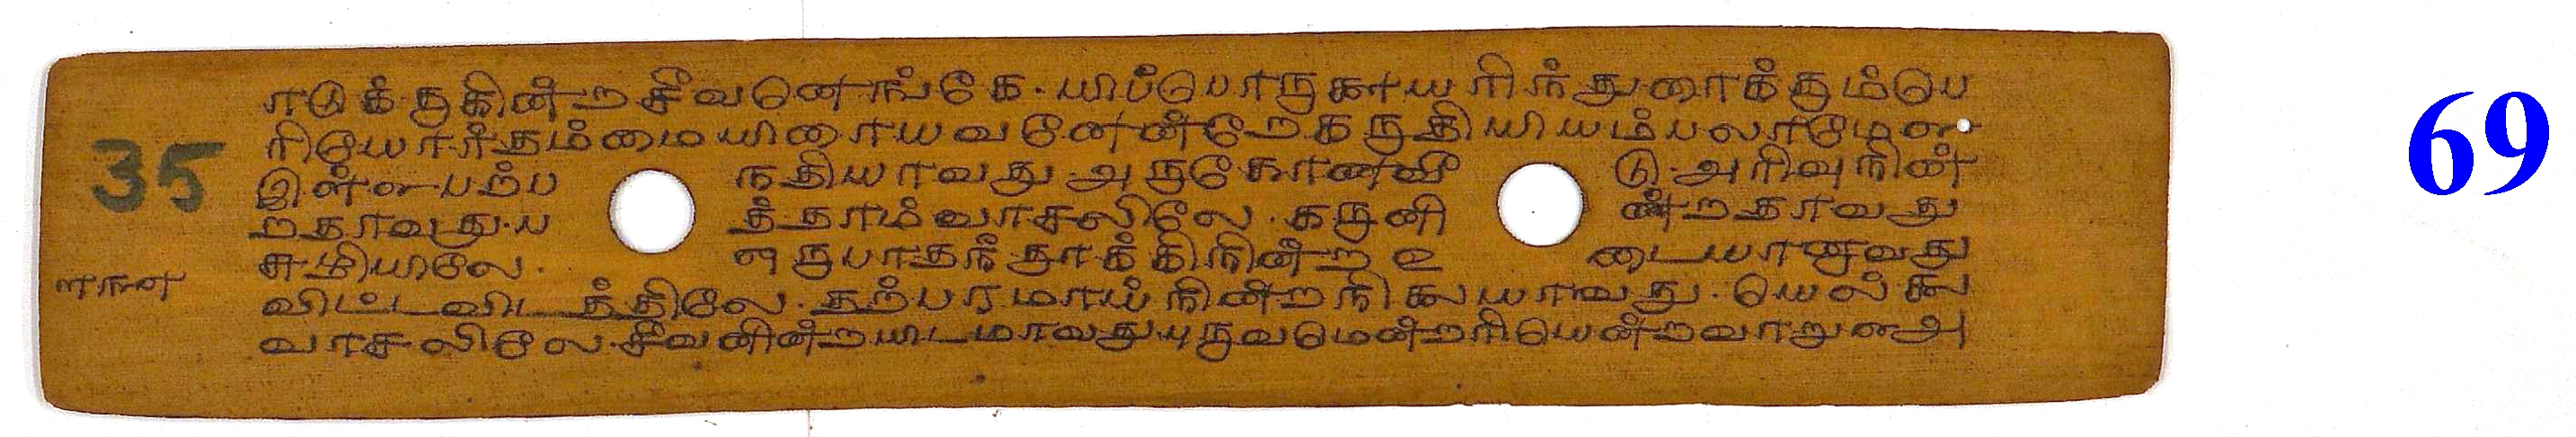 ரடுக்குகின்ற சீவனெங்கே. யிப்பொருளாயரிந்துரைக்கும்பெ
ரியோர்தம்மையிறையவனேன்றே கருதியியம்பலாமே
35
இன்ன பற்ப நதியாவது அருகோணவீ டு. அரிவுநின்
றதாவது. ப த்தாம் வாசலிலே. கருனி ன்றதாவது
சுழியிலே. குருபாதந் தாக்கிநின்ற உ டையானுவது
விட்டவிடத்திலே. தற்பரமாய் நின்ற நிலையாவது. யெல்லை
வாசலிலே. சீவனின்றயிடமாவது யுருவமென்றரியென்றவாறு
69